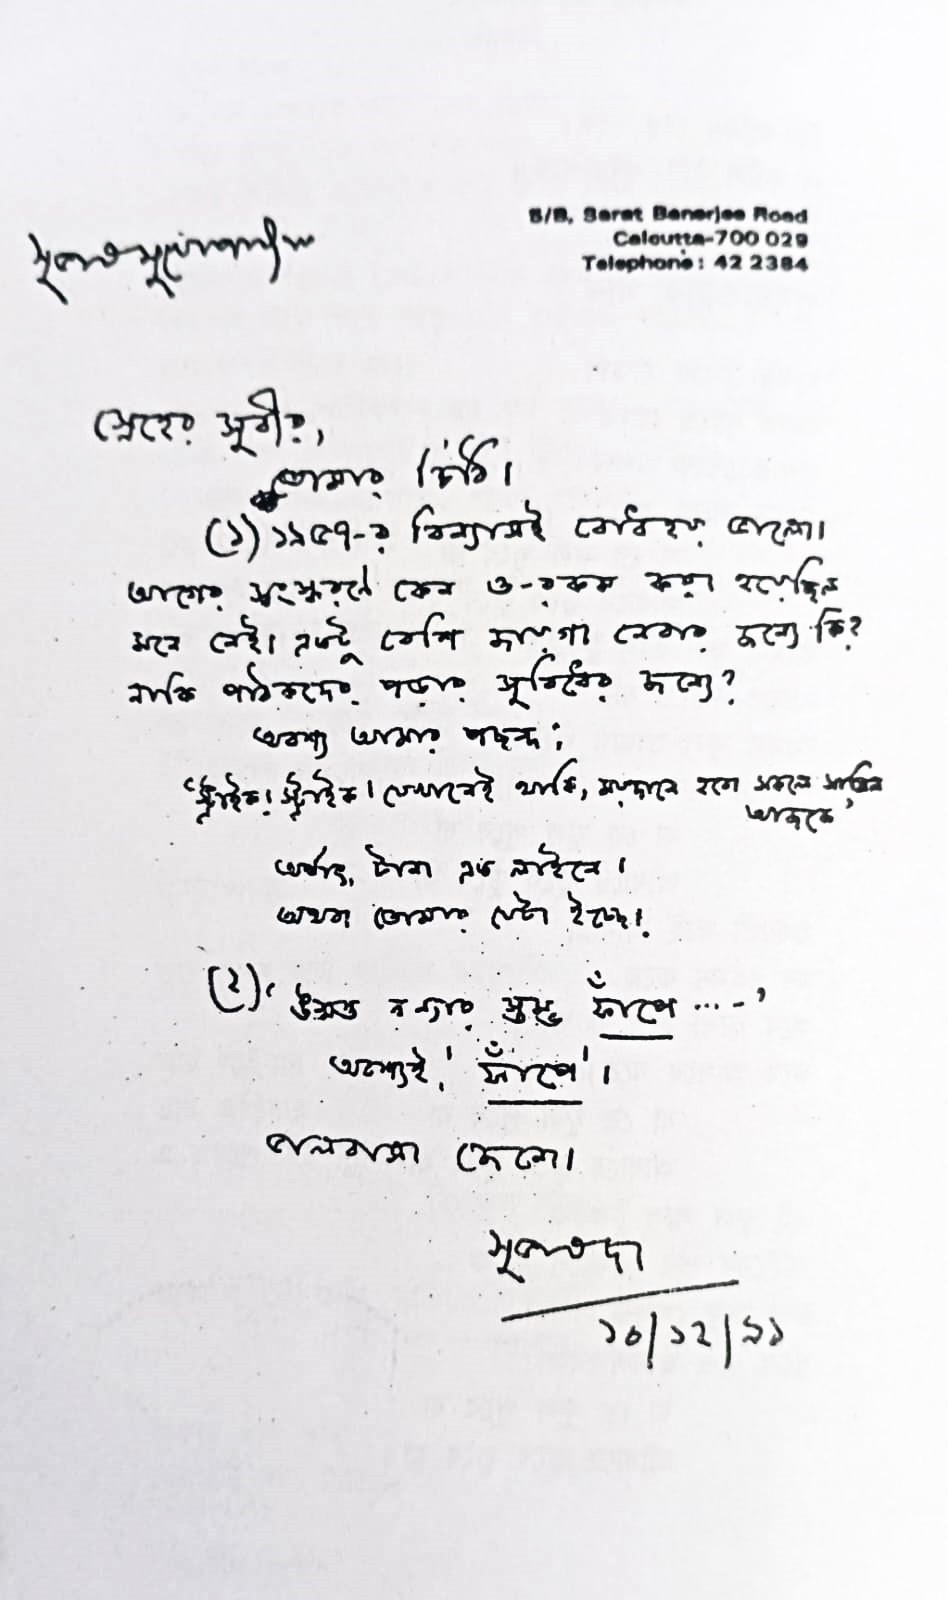 সুভাষ মুখোপাধ্যায়
5/B, Sarat Banerjee Road
Calcutta-700 029
Telephone : 42 2384
স্নেহের সুবীর,
তোমার চিঠি।
(১) ১৯৫৭-র বিন্যাসই বোধহয় ভালো।
আগের সংস্করণে কেন ও-রকম করা হয়েছিল
মনে নেই। একটু বেশি জায়গা নেবার জন্যে কি?
নাকি পাঠকদের পড়ার সুবিধের জন্যে?
অবশ্য আমার পছন্দ :
'স্ট্রাইক! স্ট্রাইক! যেখানেই থাকি, ময়দানে হবো সকলে সামিল
আজকে'
অর্থাৎ, টানা এক লাইনে।
অথবা তোমার যেটা ইচ্ছে।
(২) 'উন্মত্ত বন্যার স্তম্ভ ফাঁপে ...-'
অবশ্যই 'ফাঁপে'।
ভালবাসা জেনো।
সুভাষদা
১০/১২/৯১